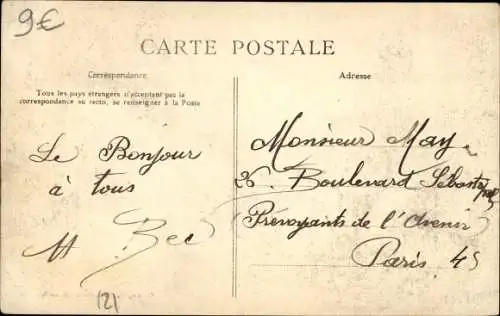 9€
CARTE POSTALE
Correspondance
Tous les pays étrangers n'acceptant pas la
correspondance au recto, se renseigner à la Poste
Le Bonjour
à tous
H Bec
(2)
Adresse
Monsieur May
26. Boulevard Sébastopol
(Prévoyants de l'Avenir
Paris 4S